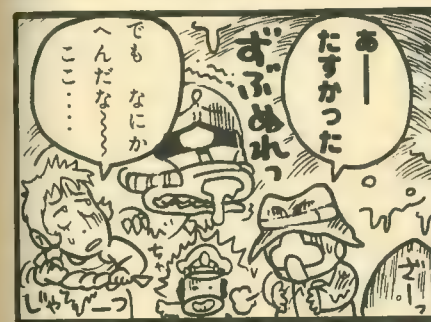 あー
たすかった
ずぶぬれっ
でも なにか
へんだな〜〜〜
ここ・・・・
ざーっ
じゃーっ